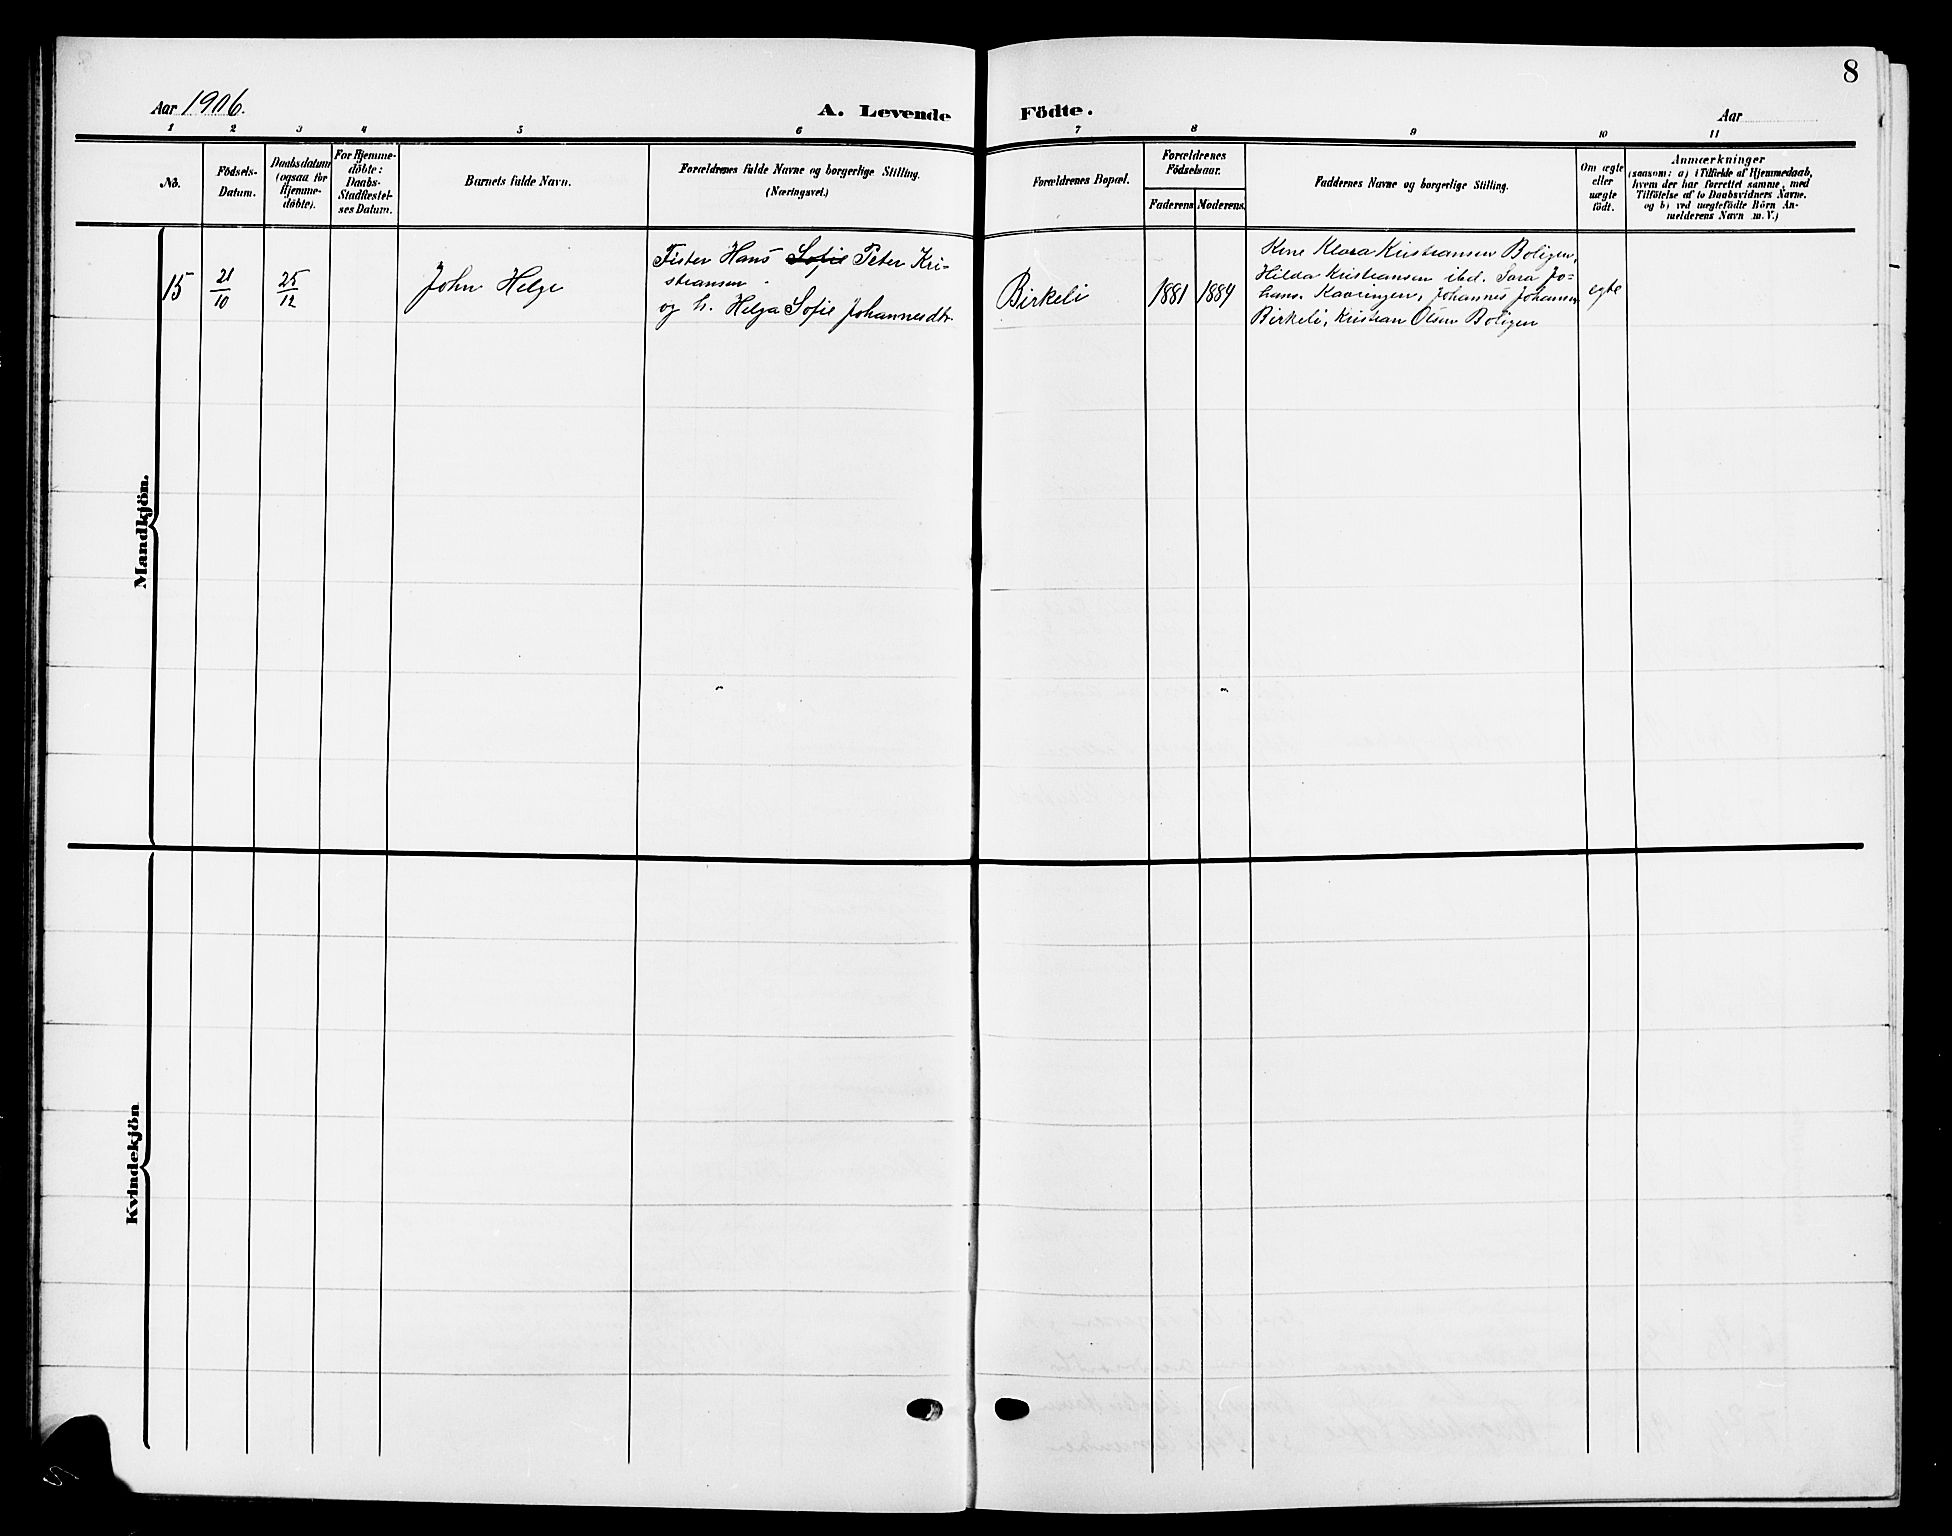 8
Aar 1906.
A. Levende Födte.
Aar
1 2 3 4 5 6 7 8 9 10 11
No.
Födsels-
Datum.
Daabsdatum
(ogsaa for
Hjemme-
döbte).
For Hjemme-
döbte:
Daabs-
Stadfæstel-
ses Datum.
Barnets fulde Navn.
Forældrenes fulde Navne og borgerlige Stilling.
(Næringsvei.)
Forældrenes Bopæl.
Forældrenes
Födselsaar.
Faderens
Moderens.
Faddernes Navne og borgerlige Stilling.
Om ægte
eller
uægte
födt.
Anmærkninger
(saasom: a) i Tilfælde af Hjemmedaab,
hvem der har forrettet samme, med
Tilföielse af to Daabsvidners Navne.
og b) ved uægtefödte Börn An-
melderens Navn m. V.)
Mandkjön.
15
21/10
25/12
John Helge
Fisker Hans Sofie Peter Kri-
stiansen
og h. Helga Sofie Johannesdtr.
Birkeli
1881
1884
Kone Klara Kristiansen Boligen,
Hilda Kristiansen ibd. Sara Jo-
hans. Kavringen, Johannes Johansen
Birkeli, Kristian Olsen Boligen
egte
Kvindekjön